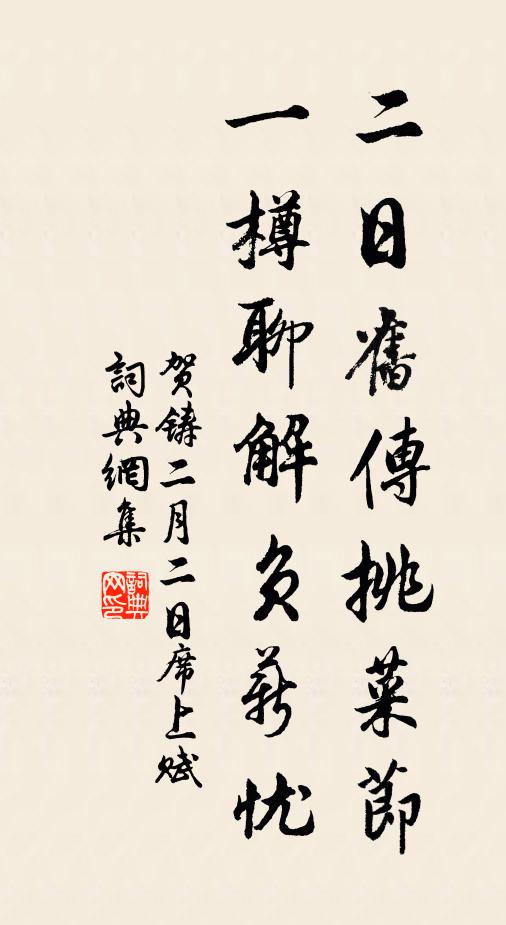 二日舊傳挑菜節
一樽聊解負薪忧
贺鑄二月二日席上赋
詞典網集
詞典网印